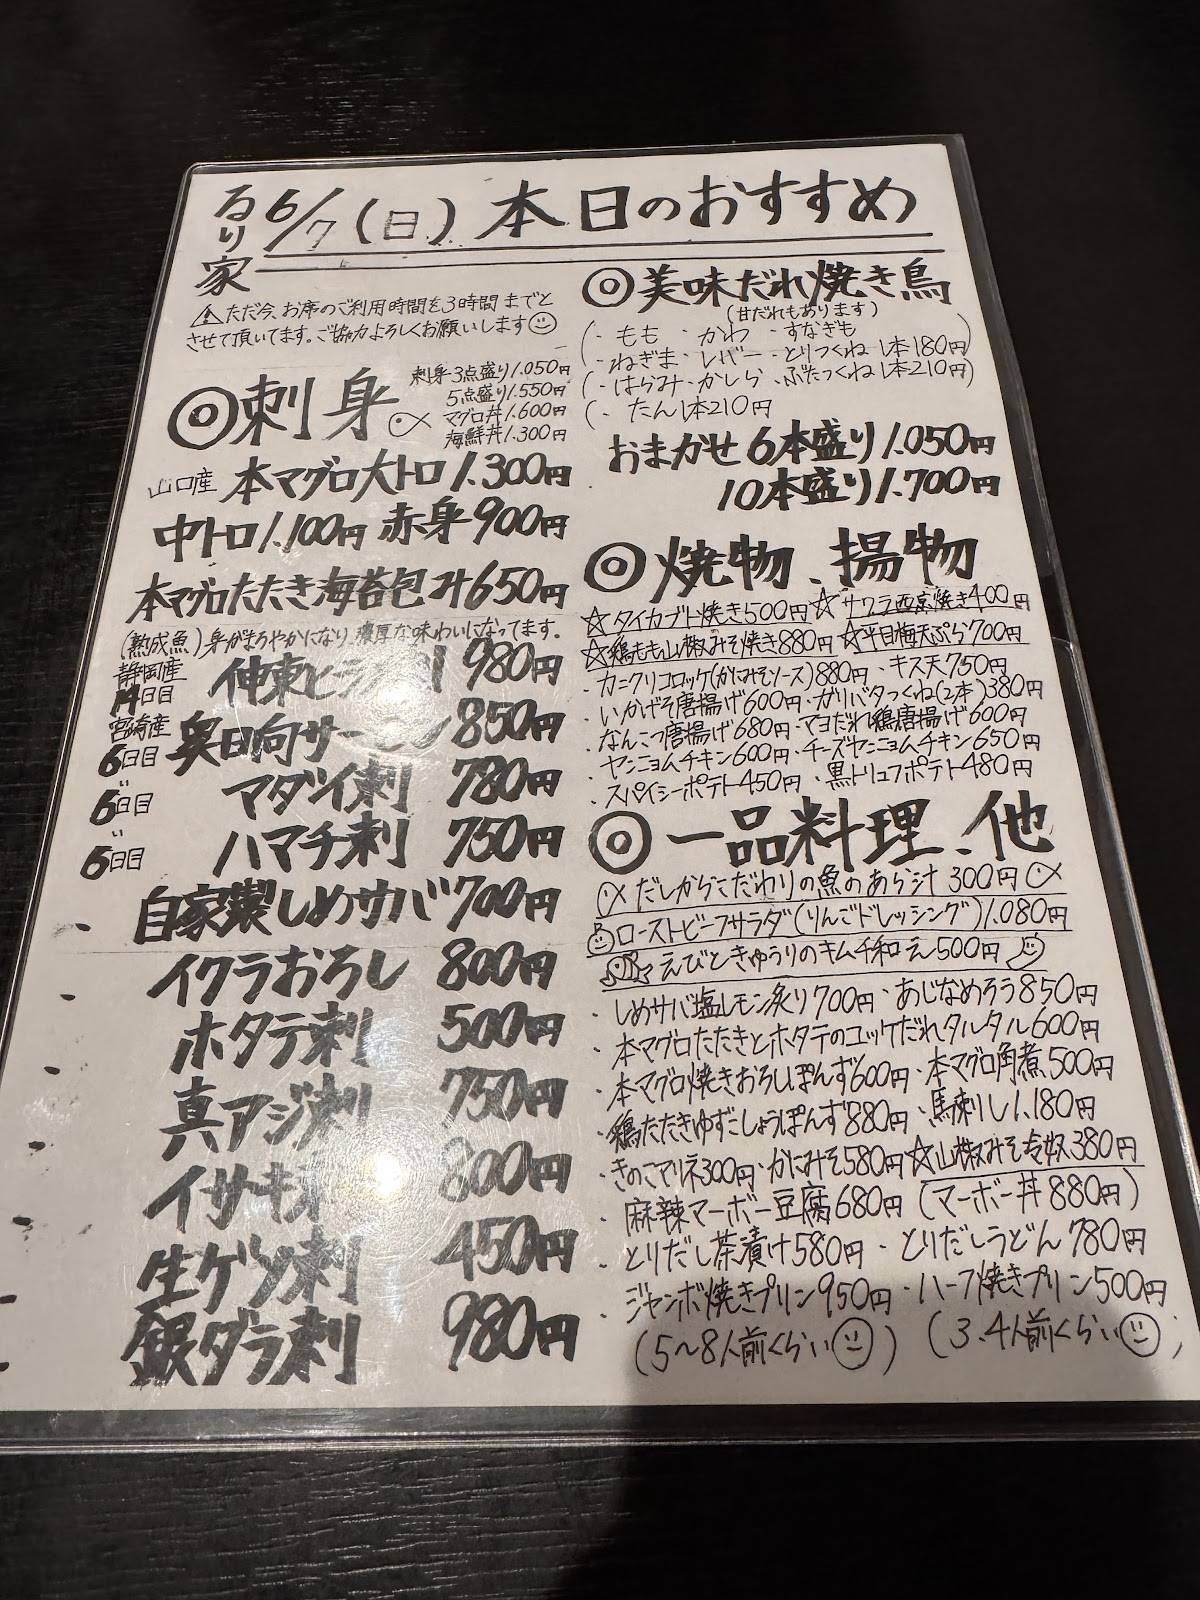 るり家
6/7(日) 本日のおすすめ
⚠ただ今、お席のご利用時間を3時間までと
させて頂いてます。ご協力よろしくお願いします☺
◎刺身
刺身3点盛り1.050円
5点盛り1.550円
マグロ丼1.600円
海鮮丼1.300円
山口産 本マグロ大トロ1.300円
中トロ1.100円 赤身900円
本マグロたたき海苔包み650円
(熟成魚)身がまろやかになり濃厚な味わいになってます。
静岡産
14日目 伊東ヒラ 980円
宮崎産
6日目 奥日向サーモン 850円
〃
6日目 マダイ刺 780円
〃
6日目 ハマチ刺 750円
自家製しめサバ700円
イクラおろし 800円
ホタテ刺 500円
真アジ刺 750円
イサキ 800円
生ゲソ刺 450円
銀ダラ刺 980円
◎美味だれ焼き鳥
(甘だれもあります)
(・もも ・かわ ・すなぎも
・ねぎま・レバー・とりつくね 1本180円)
(・はらみ・かしら・ぶたつくね 1本210円)
(・たん 1本210円
おまかせ 6本盛り1.050円
10本盛り1.700円
◎焼物、揚物
☆タイカブト焼き500円 ☆サワラ西京焼き400円
☆鶏もも山椒みそ焼き880円 ☆平目梅天ぷら700円
・カニクリコロッケ(かにみそソース)880円・キス天750円
・いかげそ唐揚げ600円・ガリバタつくね(2本)380円
・なんこつ唐揚げ680円・マヨだれ鶏唐揚げ600円
・ヤンニョムチキン600円・チーズヤンニョムチキン650円
・スパイシーポテト450円・黒トリュフポテト480円
◎一品料理、他
だしからこだわりの魚のあら汁 300円
ローストビーフサラダ(りんごドレッシング)1.080円
えびときゅうりのキムチ和え500円
・しめサバ塩レモン炙り700円・あじなめろう850円
・本マグロたたきとホタテのユッケだれタルタル600円
・本マグロ焼きおろしぽんず600円・本マグロ角煮500円
・鶏たたきゆずこしょうぽんず880円・馬刺し1.180円
・きのこマリネ300円・かにみそ580円☆山椒みそ冷奴380円
・麻辣マーボー豆腐680円(マーボー丼880円)
・とりだし茶漬け580円・とりだしうどん780円
・ジャンボ焼きプリン950円・ハーフ焼きプリン500円
(5〜8人前くらい☺) (3.4人前くらい☺)